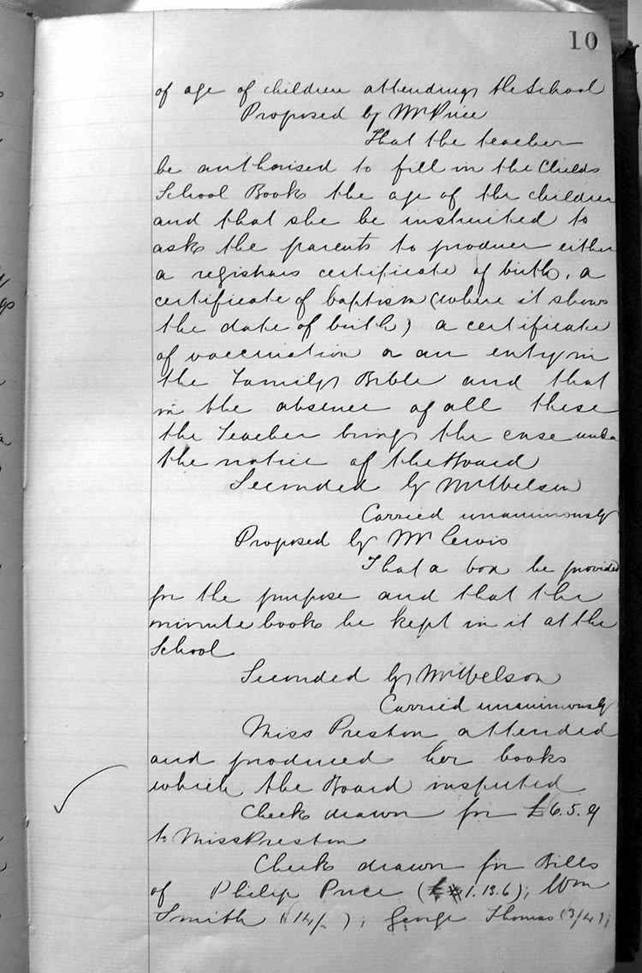 10
of age of children attending the School
Proposed by Mr Price
That the teacher
be authorised to fill in the Childs
School Books the age of the children
and that she be instructed to
ask the parents to produce either
a registrars certificate of birth, a
certificate of baptism (where it shows
the date of birth) a certificate
of vaccination or an entry in
the Family Bible and that
in the absence of all these
the Teacher bring the case under
the notice of the Board
Seconded by Mr Welson
Carried unanimously
Proposed by Mr Lewis
That a box be provided
for the purpose and that the
minute books be kept in it at the
School
Seconded by Mr Welson
Carried unanimously
Miss Preston attended
and produced her books
which the Board inspected
Cheek drawn for £6.5.9
to Miss Preston
Cheek drawn for Bills
of Philip Price (£1.13.6); Wm
Smith (14/-); George Thomas (3/4);